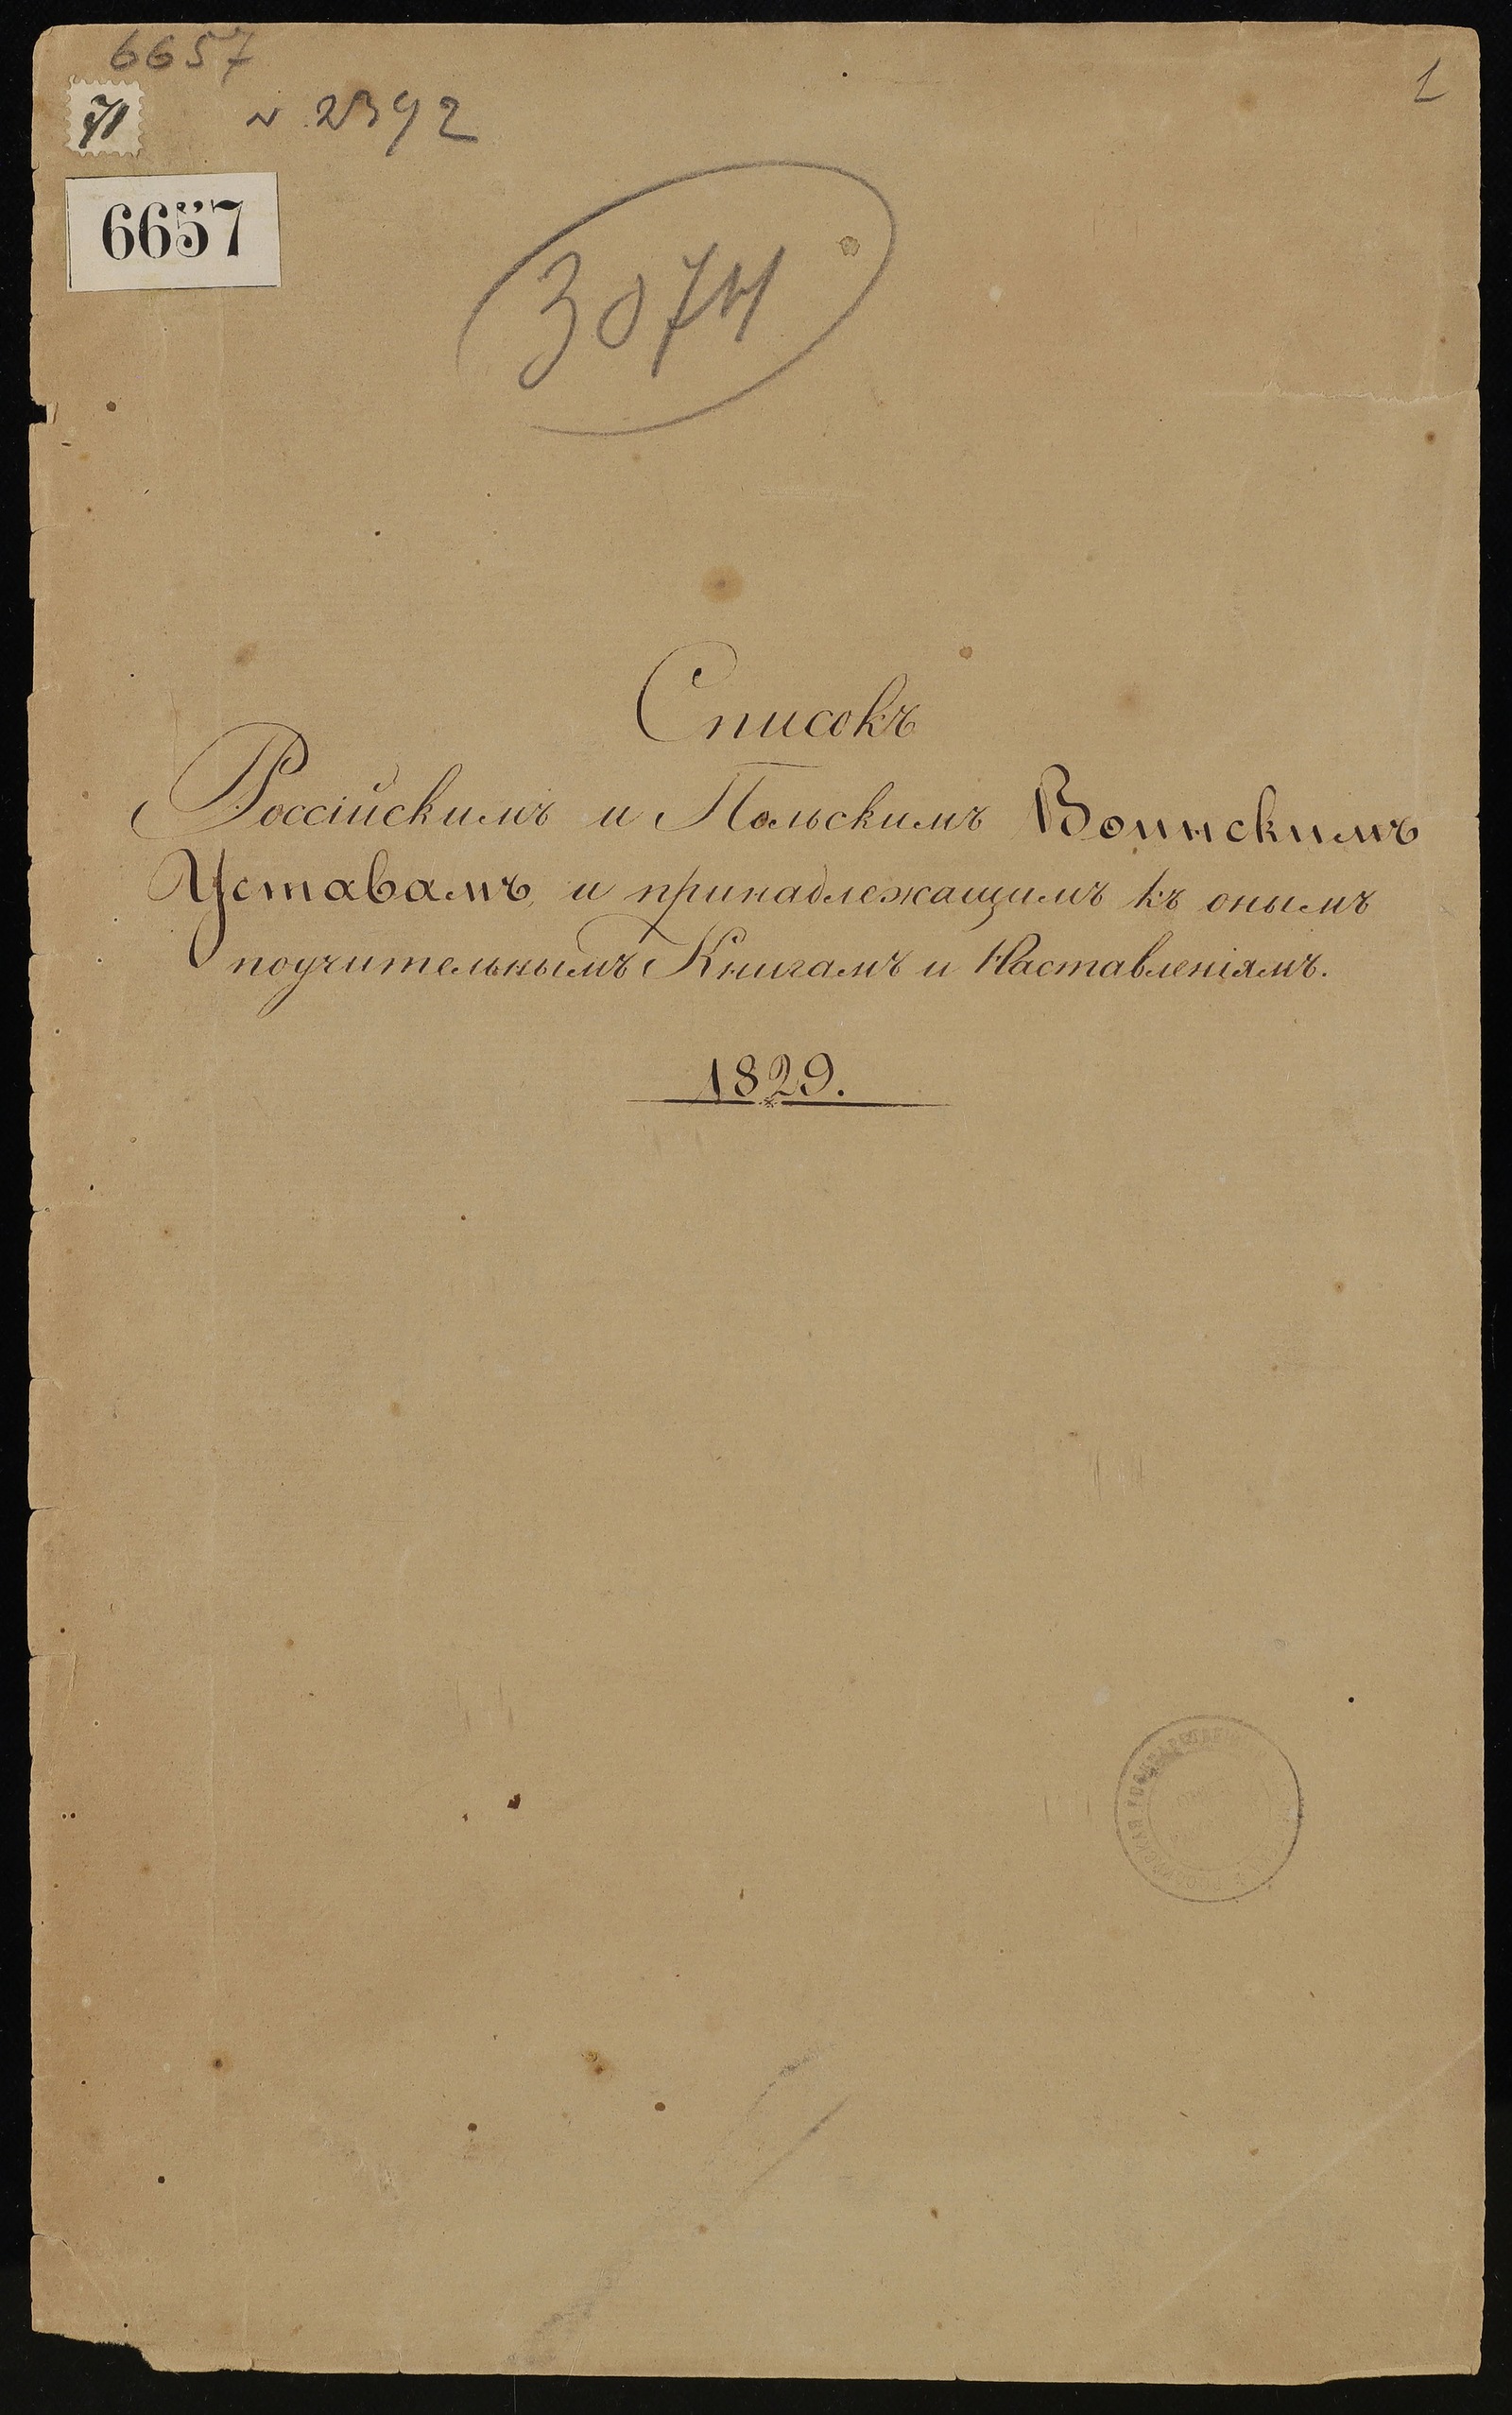 6657
71
N 2392
1
6657
3074
Списокъ
Россійскимъ и Польскимъ Воинскимъ
Уставамъ, и принадлежащимъ къ онымъ
поучительнымъ Книгамъ и Наставленіямъ.
1829.